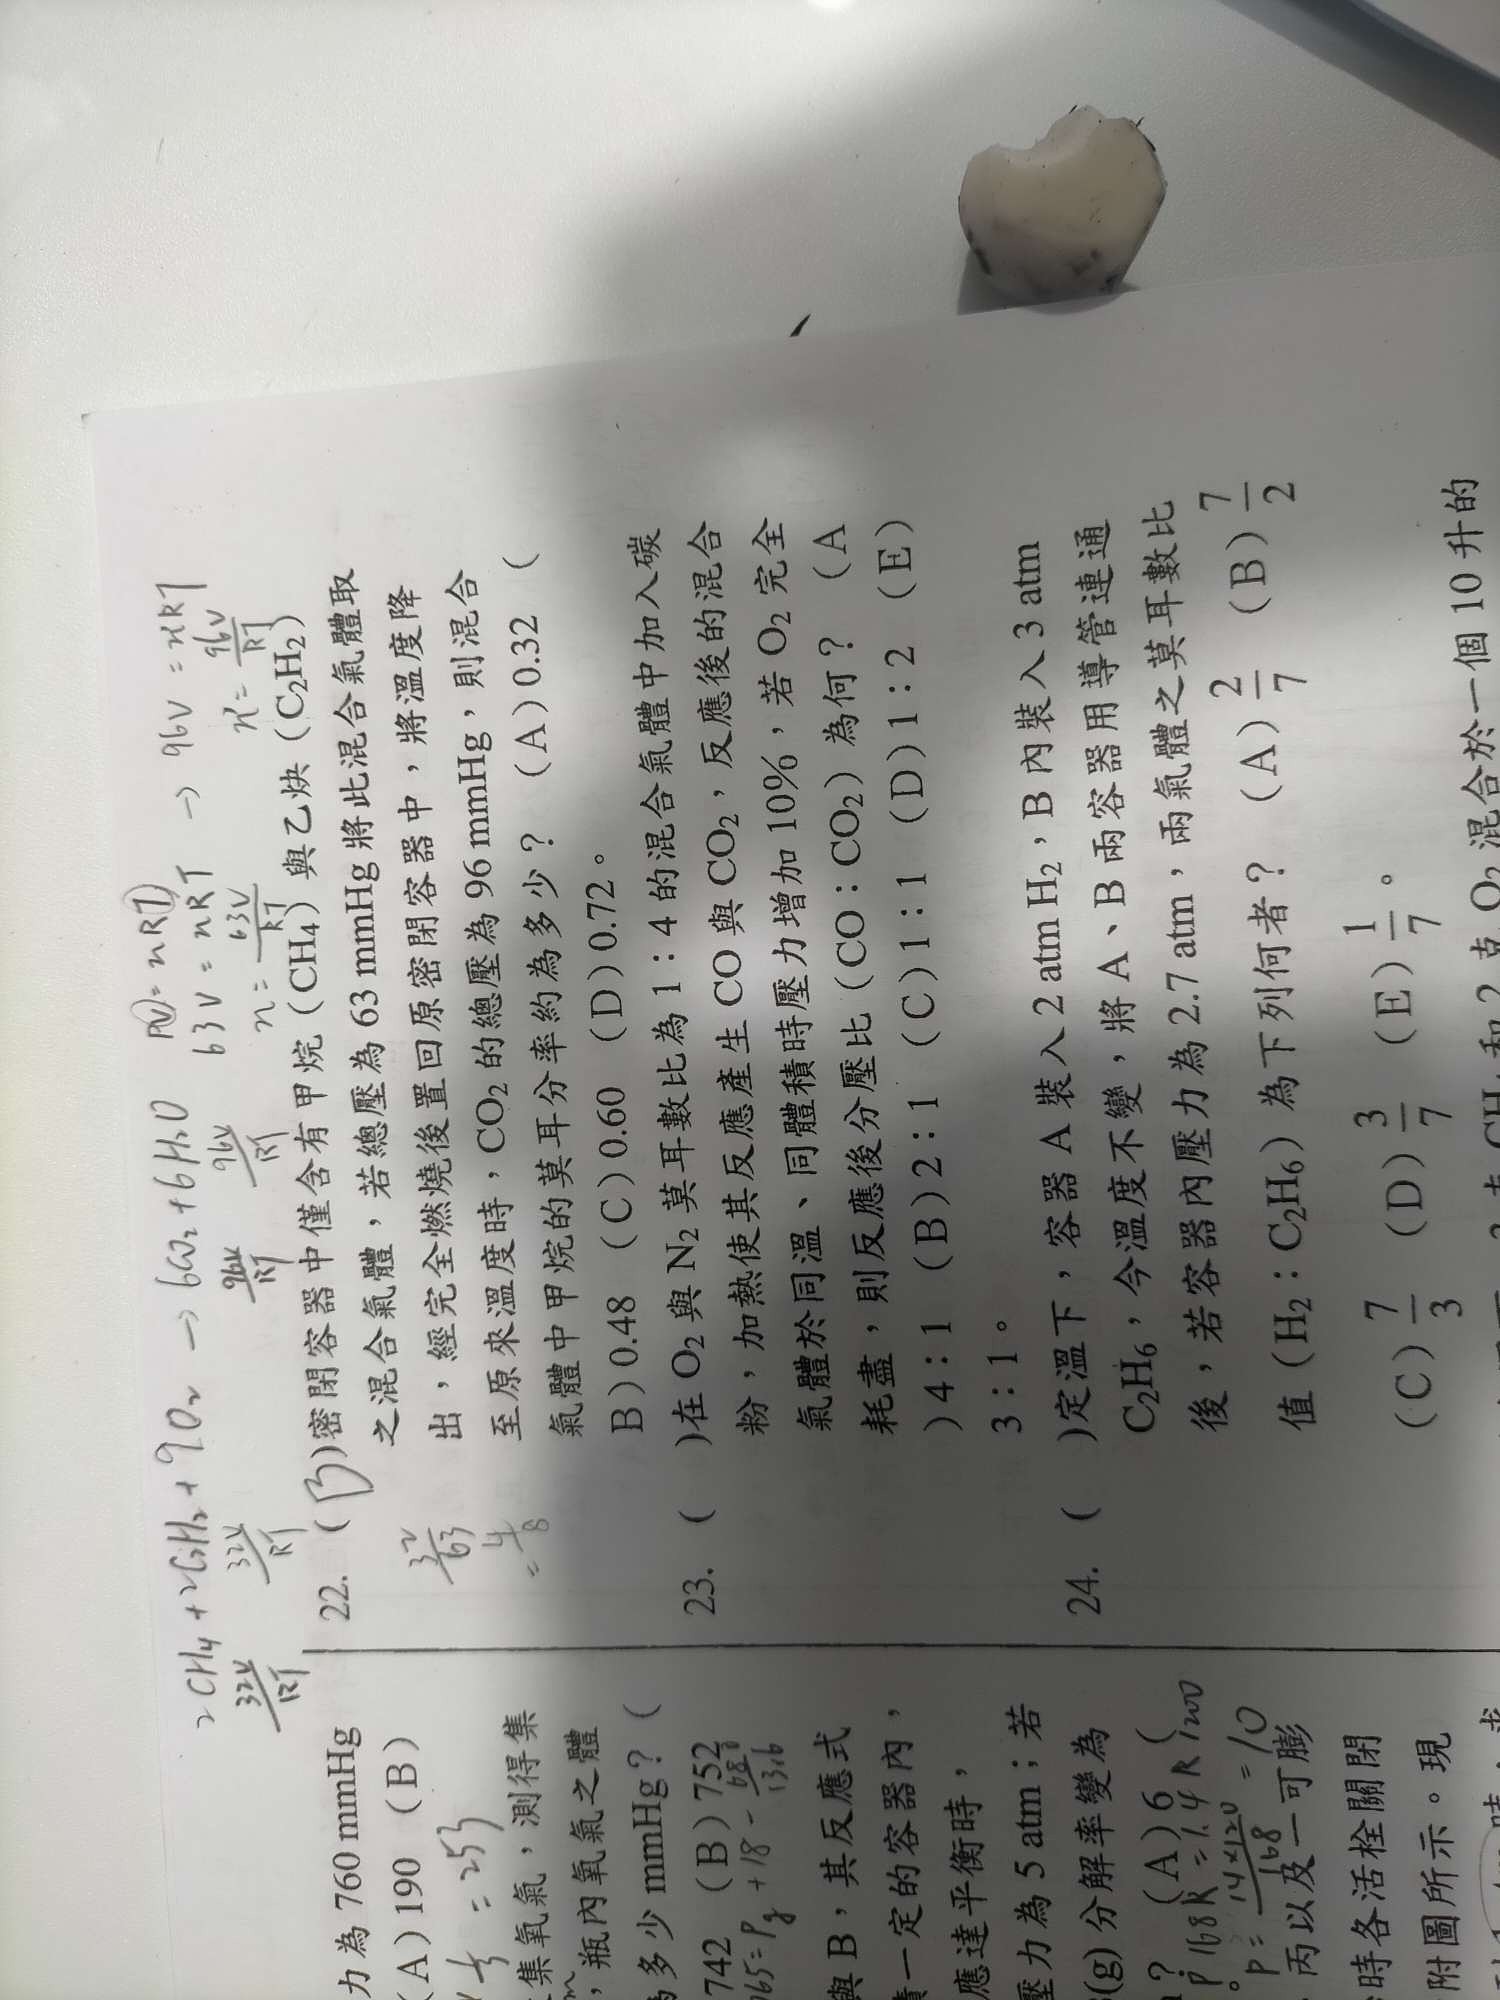 2CH4 + 2C2H2 + 9O2 → 6CO2 + 6H2O
32V/RT 32V/RT 96V/RT 96V/RT
PV = nRT
63V = nRT → 96V = nRT
n = 63V/RT n = 96V/RT
22. (B)密閉容器中僅含有甲烷(CH4)與乙炔(C2H2)
之混合氣體,若總壓為 63 mmHg 將此混合氣體取
出,經完全燃燒後置回原密閉容器中,將溫度降
至原來溫度時,CO2 的總壓為 96 mmHg,則混合
氣體中甲烷的莫耳分率約為多少? (A)0.32 (
B)0.48 (C)0.60 (D)0.72。
32/63
23. ( )在 O2 與 N2 莫耳數比為 1:4 的混合氣體中加入碳
粉,加熱使其反應產生 CO 與 CO2,反應後的混合
氣體於同溫、同體積時壓力增加 10%,若 O2 完全
耗盡,則反應後分壓比(CO:CO2)為何? (A
)4:1 (B)2:1 (C)1:1 (D)1:2 (E)
3:1。
24. ( )定溫下,容器 A 裝入 2 atm H2,B 內裝入 3 atm
C2H6,今溫度不變,將 A、B 兩容器用導管連通
後,若容器內壓力為 2.7 atm,兩氣體之莫耳數比
值(H2:C2H6)為下列何者? (A)2/7 (B)7/2
(C)7/3 (D)3/7 (E)1/7。
O2 混合於一個 10 升的
力為 760 mmHg
(A)190 (B)
= 253
集氧氣,測得集
,瓶內氧氣之體
多少 mmHg? (
742 (B)752
765 = Pg + 18 - 680/13.6
與 B,其反應式
一定的容器內,
應達平衡時,
壓力為 5 atm;若
(g)分解率變為
? (A)6 (
P 168R = 1.4 R 1200
P = 14×120/168 = 10
丙以及一可膨
時各活栓關閉
附圖所示。現